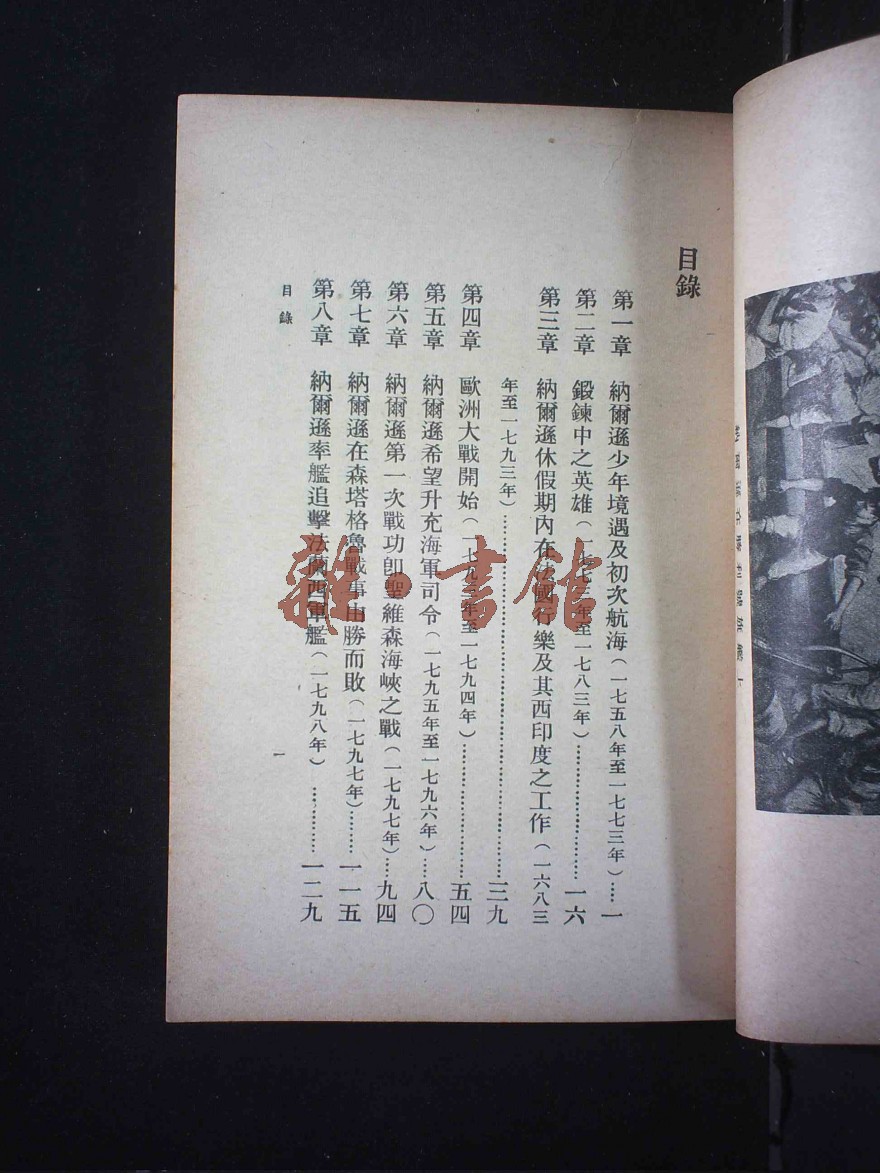 納爾遜在勝利號旗艦上
目錄
第一章 納爾遜少年境遇及初次航海（一七五八年至一七七三年）……一
第二章 鍛鍊中之英雄（一七七三年至一七八三年）……………………一六
第三章 納爾遜休假期內在法國行樂及其西印度之工作（一六八三
年至一七九三年）……………………………………………………三九
第四章 歐洲大戰開始（一七九三年至一七九四年）……………………五四
第五章 納爾遜希望升充海軍司令（一七九五年至一七九六年）……八〇
第六章 納爾遜第一次戰功卽聖維森海峽之戰（一七九七年）……九四
第七章 納爾遜在森塔格魯戰事由勝而敗（一七九七年）………一一五
第八章 納爾遜率艦追擊法蘭西軍艦（一七九八年）…………一二九
目錄
一
雜·書館